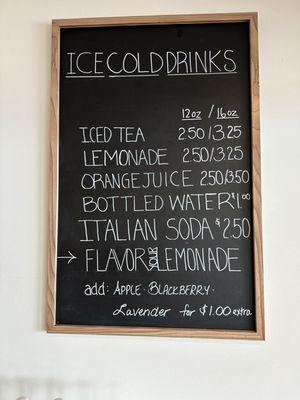 ICE COLD DRINKS
12oz / 16oz
ICED TEA 2.50/3.25
LEMONADE 2.50/3.25
ORANGE JUICE 2.50/3.50
BOTTLED WATER $1.00
ITALIAN SODA $2.50
→ FLAVOR YOUR LEMONADE
add: APPLE · BLACKBERRY ·
Lavender for $1.00 extra